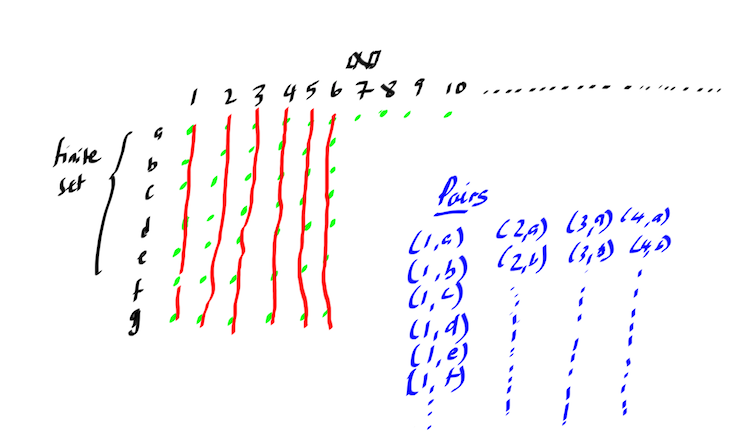 ∞
1 2 3 4 5 6 7 8 9 10 ..........
finite
set
a
b
c
d
e
f
g
Pairs
(1,a) (2,a) (3,a) (4,a)
(1,b) (2,b) (3,b) (4,b)
(1,c)
(1,d)
(1,e)
(1,f)